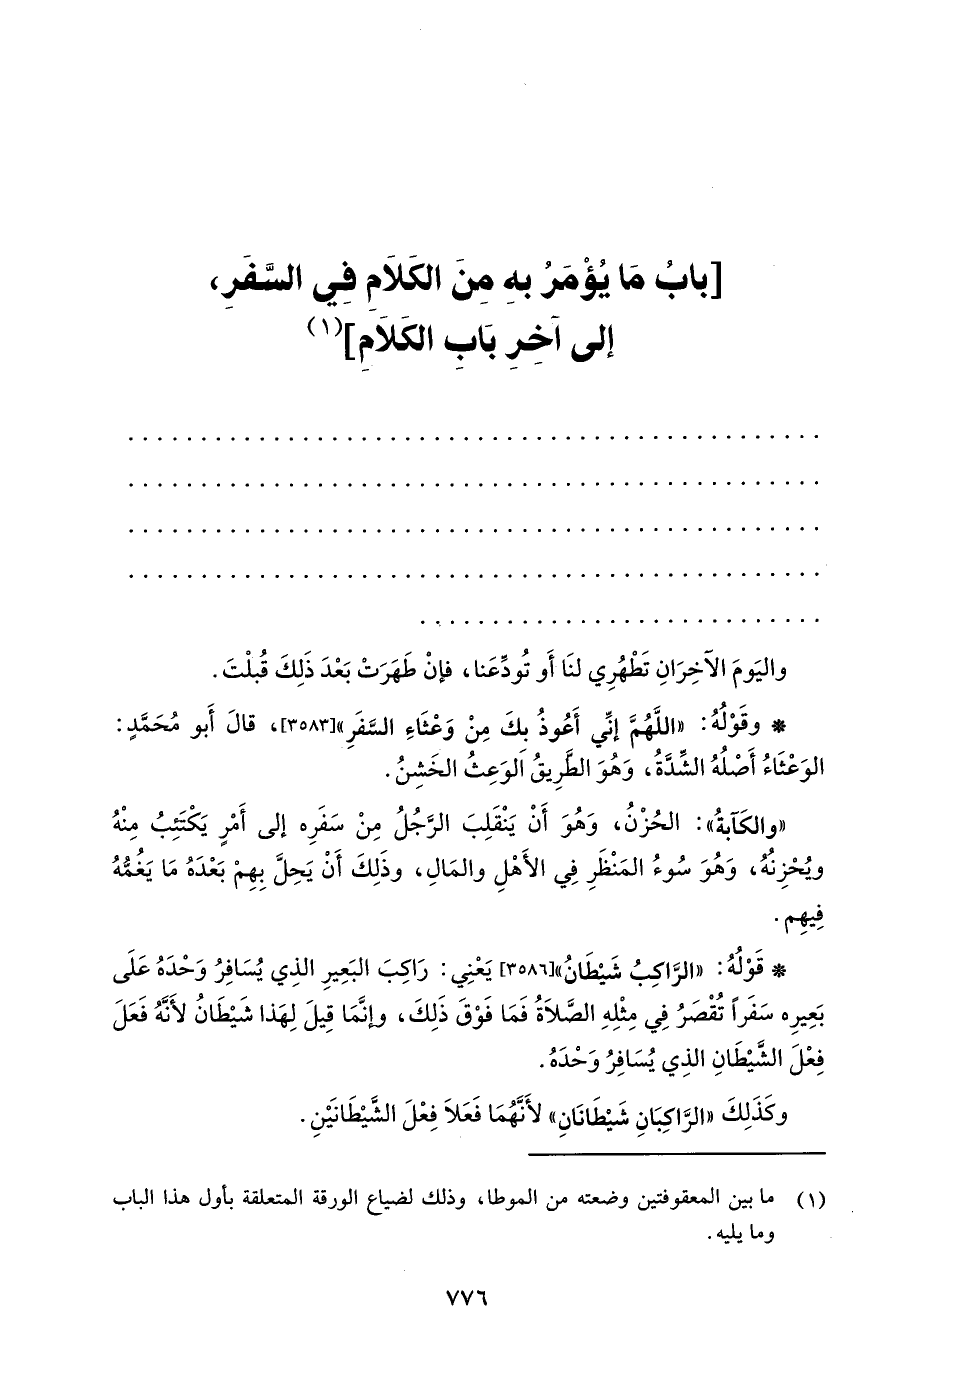 [بابُ مَا يُؤْمَرُ بهِ مِنَ الكَلَامِ فِي السَّفَرِ،
إلى آخِرِ بَابِ الكَلَامِ](١)
. . . . . . . . . . . . . . . . . . . . . . . . . . . . . . . . . . . . . . . . . . . . . . . .
. . . . . . . . . . . . . . . . . . . . . . . . . . . . . . . . . . . . . . . . . . . . . . . .
. . . . . . . . . . . . . . . . . . . . . . . . . . . . . . . . . . . . . . . . . . . . . . . .
. . . . . . . . . . . . . . . . . . . . . . . . . . . . . . . . . . . . . . . . . . . . . . . .
. . . . . . . . . . . . . . . . . . . . . . . . . . . .
واليَومَ الآخِرَانِ تَطْهُرِي لنَا أَو تُودِّعَنا، فإنْ طَهَرَتْ بَعْدَ ذَلِكَ قُبلْتَ.
* وقَوْلُهُ: «اللَّهُمَّ إنِّي أَعُوذُ بكَ مِنْ وَعْثَاءِ السَّفَرِ»[٣٥٨٣]، قالَ أَبو مُحَمَّدٍ:
الوَعْثَاءُ أَصْلُهُ الشِّدَّةُ، وَهُوَ الطَّرِيقُ الوَعِثُ الخَشِنُ.
«والكَآبةُ»: الحُزْنُ، وَهُوَ أَنْ يَنْقَلِبَ الرَّجُلُ مِنْ سَفَرِه إلى أَمْرٍ يَكْتَئِبُ مِنْهُ
ويُحْزِنُهُ، وَهُوَ سُوءُ المَنْظَرِ فِي الأَهْلِ والمَالِ، وذَلِكَ أَنْ يَحِلَّ بِهِمْ بَعْدَهُ مَا يَغُمُّهُ
فِيهِم.
* قَوْلُهُ: «الرَّاكِبُ شَيْطَانُ»[٣٥٨٦] يَعْنِي: رَاكِبَ البَعِيرِ الذِي يُسَافِرُ وَحْدَهُ عَلَى
بَعِيرِه سَفَراً تُقْصَرُ فِي مِثْلِهِ الصَّلَاةُ فَمَا فَوْقَ ذَلِكَ، وإنَّمَا قِيلَ لِهَذا شَيْطَانُ لأَنَّهُ فَعَلَ
فِعْلَ الشَّيْطَانِ الذِي يُسَافِرُ وَحْدَهُ.
وكَذَلِكَ «الرَّاكِبَانِ شَيْطَانَانِ» لأَنَّهُمَا فَعَلَا فِعْلَ الشَّيْطَانَيْنِ.
(١) ما بين المعقوفتين وضعته من الموطا، وذلك لضياع الورقة المتعلقة بأول هذا الباب
وما يليه.
٧٧٦